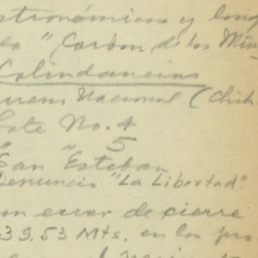 stronómicos y long
"Cordon de los Min
Colindancias
Nacional (Chih
Lote No. 4
" 5
"San Esteban
Denuncio "La Libertad"
un error de cierre
39.53 Mts. en los